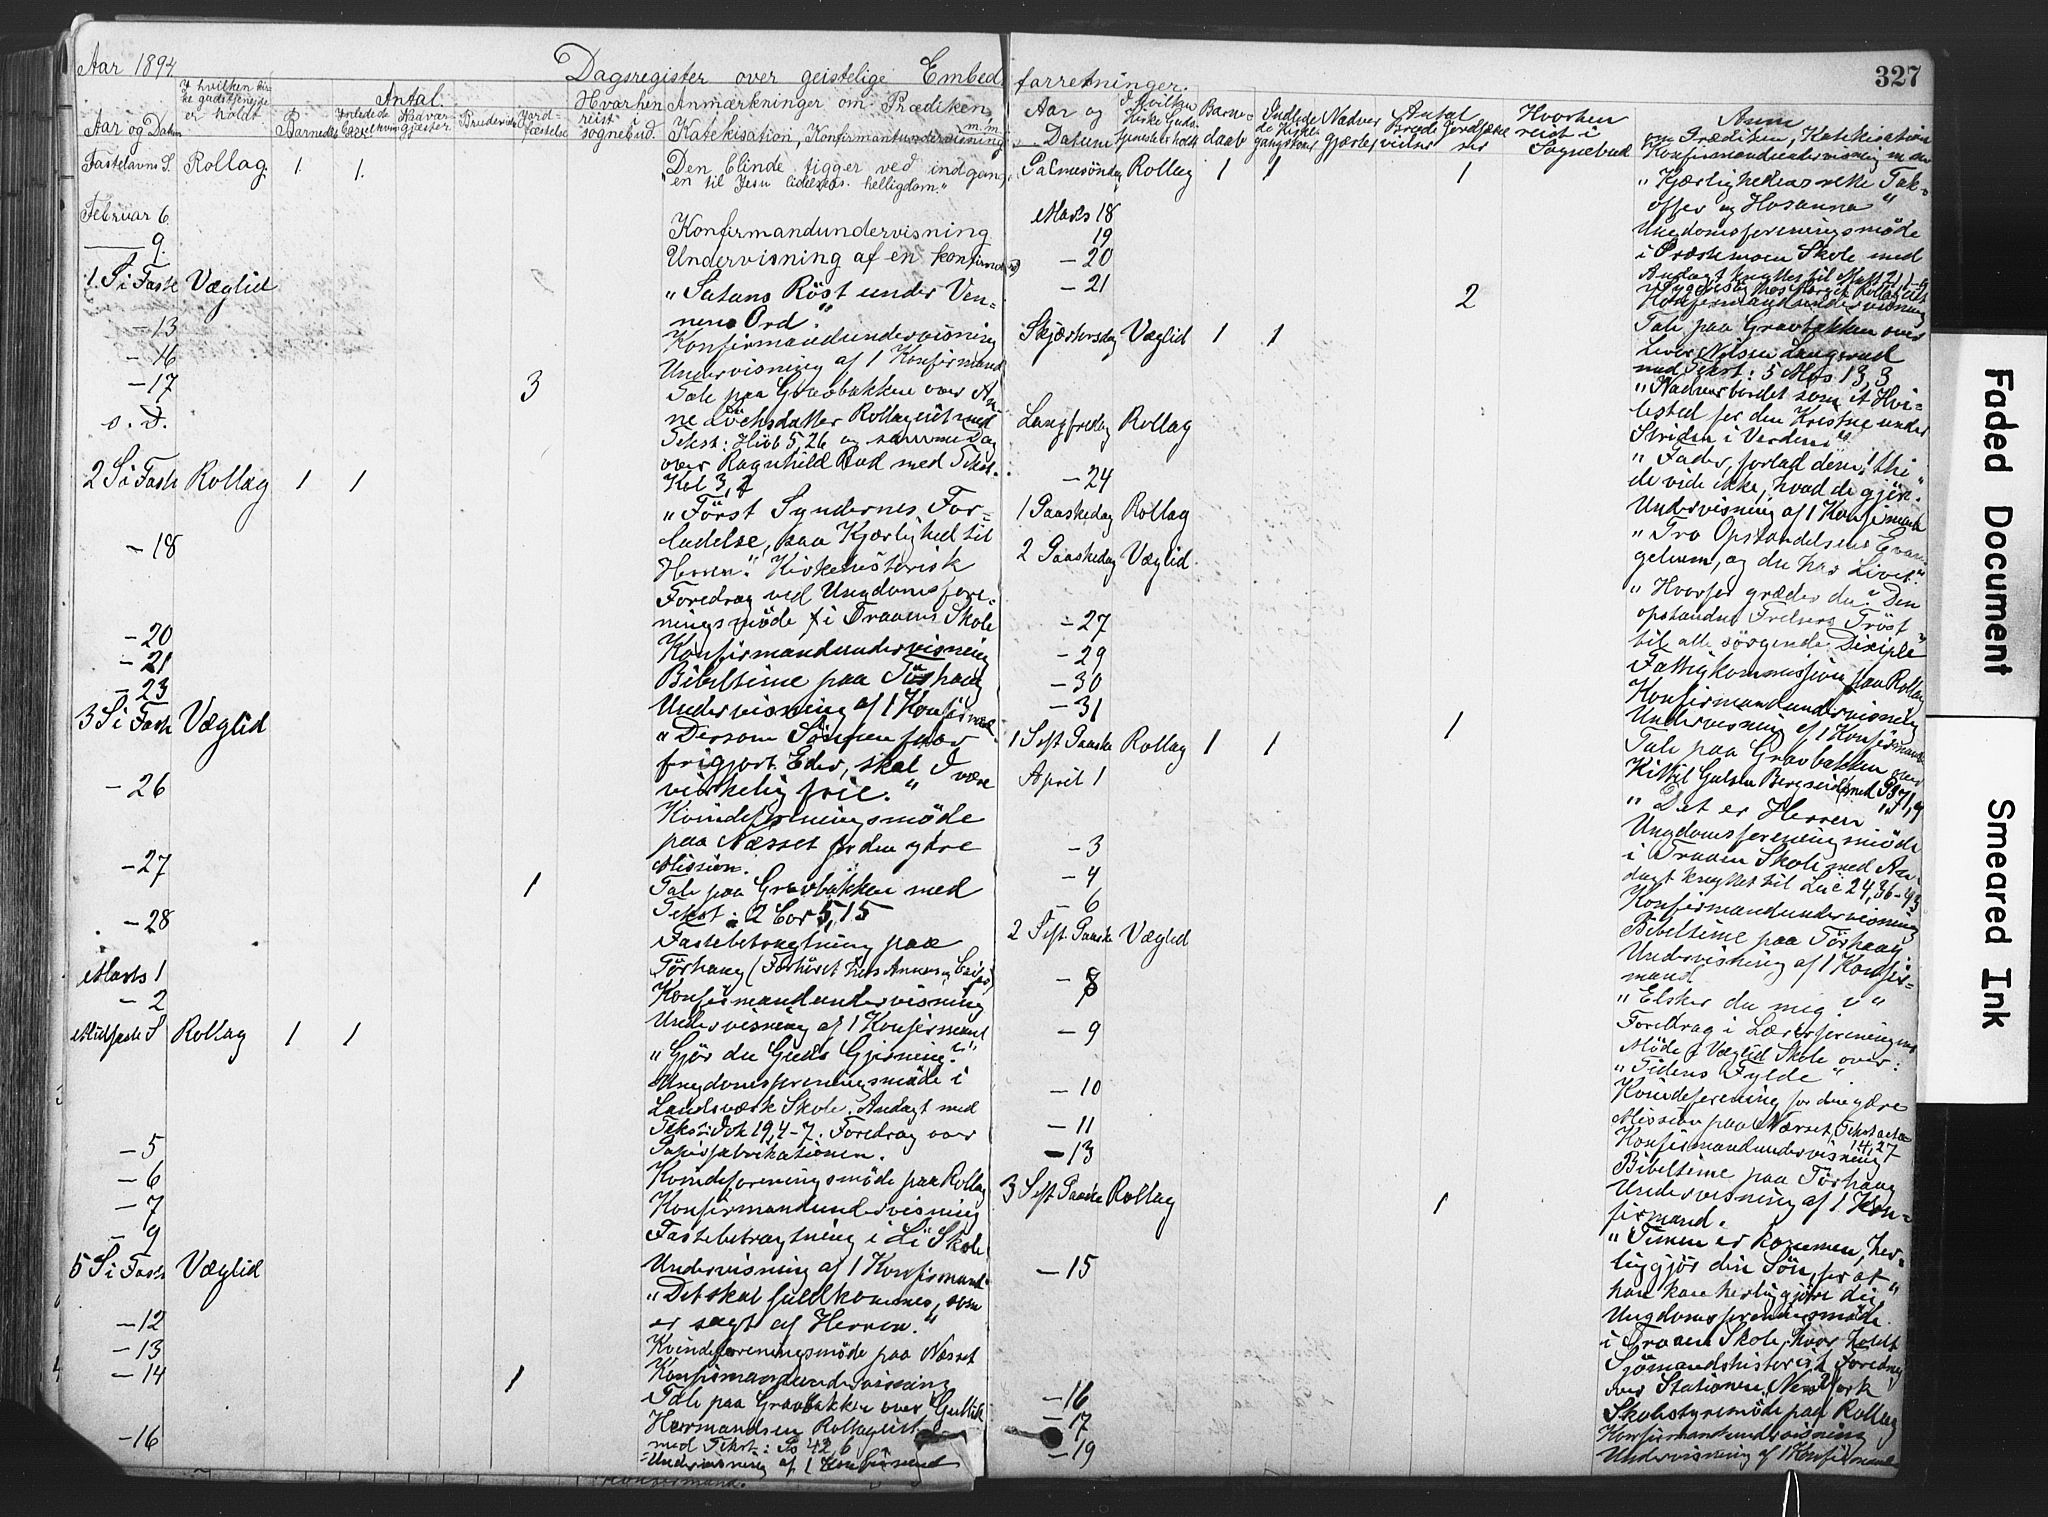 327
Aar 1894
Dagsregister over geistelige Embedsforretninger.
I hvilken kirke gudstjeneste er holdt
Antal
Aar og Datum
Hvorhen reist i sognebud.
Anmærkninger om Prædiken,
Katekisation, Konfirmantundervisning m.m.
Fastelavns S. Rollag. 1 1.
Den blinde tigger ved indgangen
en til Jesu lidelses helligdom."
Februar 6
Konfirmandundervisning
9.
Undervisning af en konfirmand
1 S i Faste Væglid
"Satans Röst under Vennens
Ord."
- 13
Konfirmandundervisning
- 16
Undervisning af 1 Konfirmand
- 17 3
Tale paa Gravbakken over An-
s. D.
Tekst: Hiob 5,26 og samme Dag
over Ragnhild Rud med Tekst.
Kol 3,
2 S i Faste Rollag 1 1
"Först Syndernes For-
ladelse, saa Kjærlighed til
Herren." Kirkehistorisk
- 18
Foredrag ved Ungdomsfore-
ningsmöde i Traaens Skole
- 20
Konfirmandundervisning
- 21
Bibeltime paa Törhaug
- 23
Undervisning af 1 Konfirmand
3 S i Faste Væglid
"Dersom Sönnen faar
frigjort Eder, skal I være
virkelig frie."
- 26
Kvindeforeningsmöde
paa Næsset for den ydre
Mission.
- 27 1
Tale paa Gravbakken med
Tekst: 2 Cor 5,15
- 28
Fastebetragtning paa
Törhaug (Forhöret hos Annas og Caifas)
Marts 1
Konfirmandundervisning
- 2
Undervisning af 1 Konfirmand
Midfaste S Rollag 1 1
"Gjör du Guds Gjerning?"
Ungdomsforeningsmöde i
Landsværk Skole. Andagt med
Tekst: Joh 19,4-7. Foredrag over
Papirfabrikationen.
- 5
Kvindeforeningsmöde paa Rollag
- 6
Konfirmandundervisning
- 7
Fastebetragtning i Li Skole
- 9
Undervisning af 1 Konfirmand
5 S i Faste Væglid
"Det skal fuldkommes, som
er sagt af Herren."
- 12
Kvindeforeningsmöde paa Næsset
- 13
Konfirmandundervisning
- 14 1
Tale paa Gravbakken over Gullik
Hermandsen Rollagseiet
med Tekst: Ps 42,6
- 16
Undervisning af 1 Konfirmand
Konfirmand.
Aar og Datum
I hvilken Kirke Gudstjeneste holdt
Barnedaab
Indledede Kirkegangskoner
Nadvergjæster
Antal
Hvorhen reist i Sognebud
Anm
om Prædiken, Katekisation
Konfirmandundervisning m m
Palmesöndag Rollag 1 1 1
"Kjærlighedens rette Tak-
offer og Hosanna"
Marts 18
Ungdomsforeningsmöde
19
Skole med
Andagt knyttet til Math 21,1-9
- 20
- 21 2
Konfirmandundervisning
Tale paa Gravbakken over
Nilsen Langerud
med Tekst: 5 Mos 13,3
Skjærtorsdag Væglid 1 1
"Nadverbordet som et Hvi-
lested for den Kristne under
Striden i Verden"
Langfredag Rollag
"Fader, forlad dem, thi
de vide ikke, hvad de gjöre."
- 24
Undervisning af 1 Konfirmand
1 Paaskedag Rollag
"Tro Opstandelsens Evan-
gelium, og du har Livet."
2 Paaskedag Væglid.
"Hvorfor græder du? Den
opstandne Frelsers Tröst
til alle sörgende Disciple"
- 27
Fattigkommission paa Rollag
- 29
Konfirmandundervisning
- 30
Undervisning af 1 Konfirmand
- 31 1
Tale paa Gravbakken over
Kittil
1 S eft Paaske Rollag 1 1
"Det er Herren"
April 1
Ungdomsforeningsmöde
i Traaen Skole med An-
dagt knyttet til Luc 24,36-43
- 3
Konfirmandundervisning
- 4
Bibeltime paa Törhaug
- 6
Undervisning af 1 Konfir-
mand
2 S eft. Paaske Væglid
"Elsker du mig?"
- 8
Foredrag i Lærerforeningens
Möde i Væglid Skole over:
"Tidens Fylde".
- 9
Kvindeforening for den ydre
Mission paa Næsset, Tekst
14,27
- 10
Konfirmandundervisning
- 11
Bibeltime paa Törhaug
- 13
Undervisning af 1 Kon-
firmand.
3 S eft Paaske Rollag 1
"Timen er kommen, her-
liggjör din Sön, for at
han kan herliggjöre dig"
- 15
Ungdomsforeningsmöde
i Traaen Skole, hvor holdt
Sjömandshistorisk Foredrag
over Stationen New York
- 16
Skolestyremöde paa Rollag
- 17
Konfirmandundervisning
- 19
Undervisning af 1 Konfirmand
Faded Document
Smeared Ink